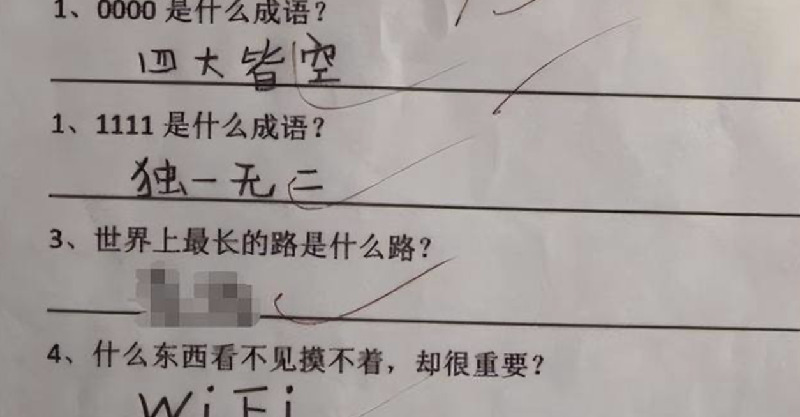 1、0000 是什么成语？
四大皆空
1、1111 是什么成语？
独一无二
3、世界上最长的路是什么路？
4、什么东西看不见摸不着，却很重要？
WiFi